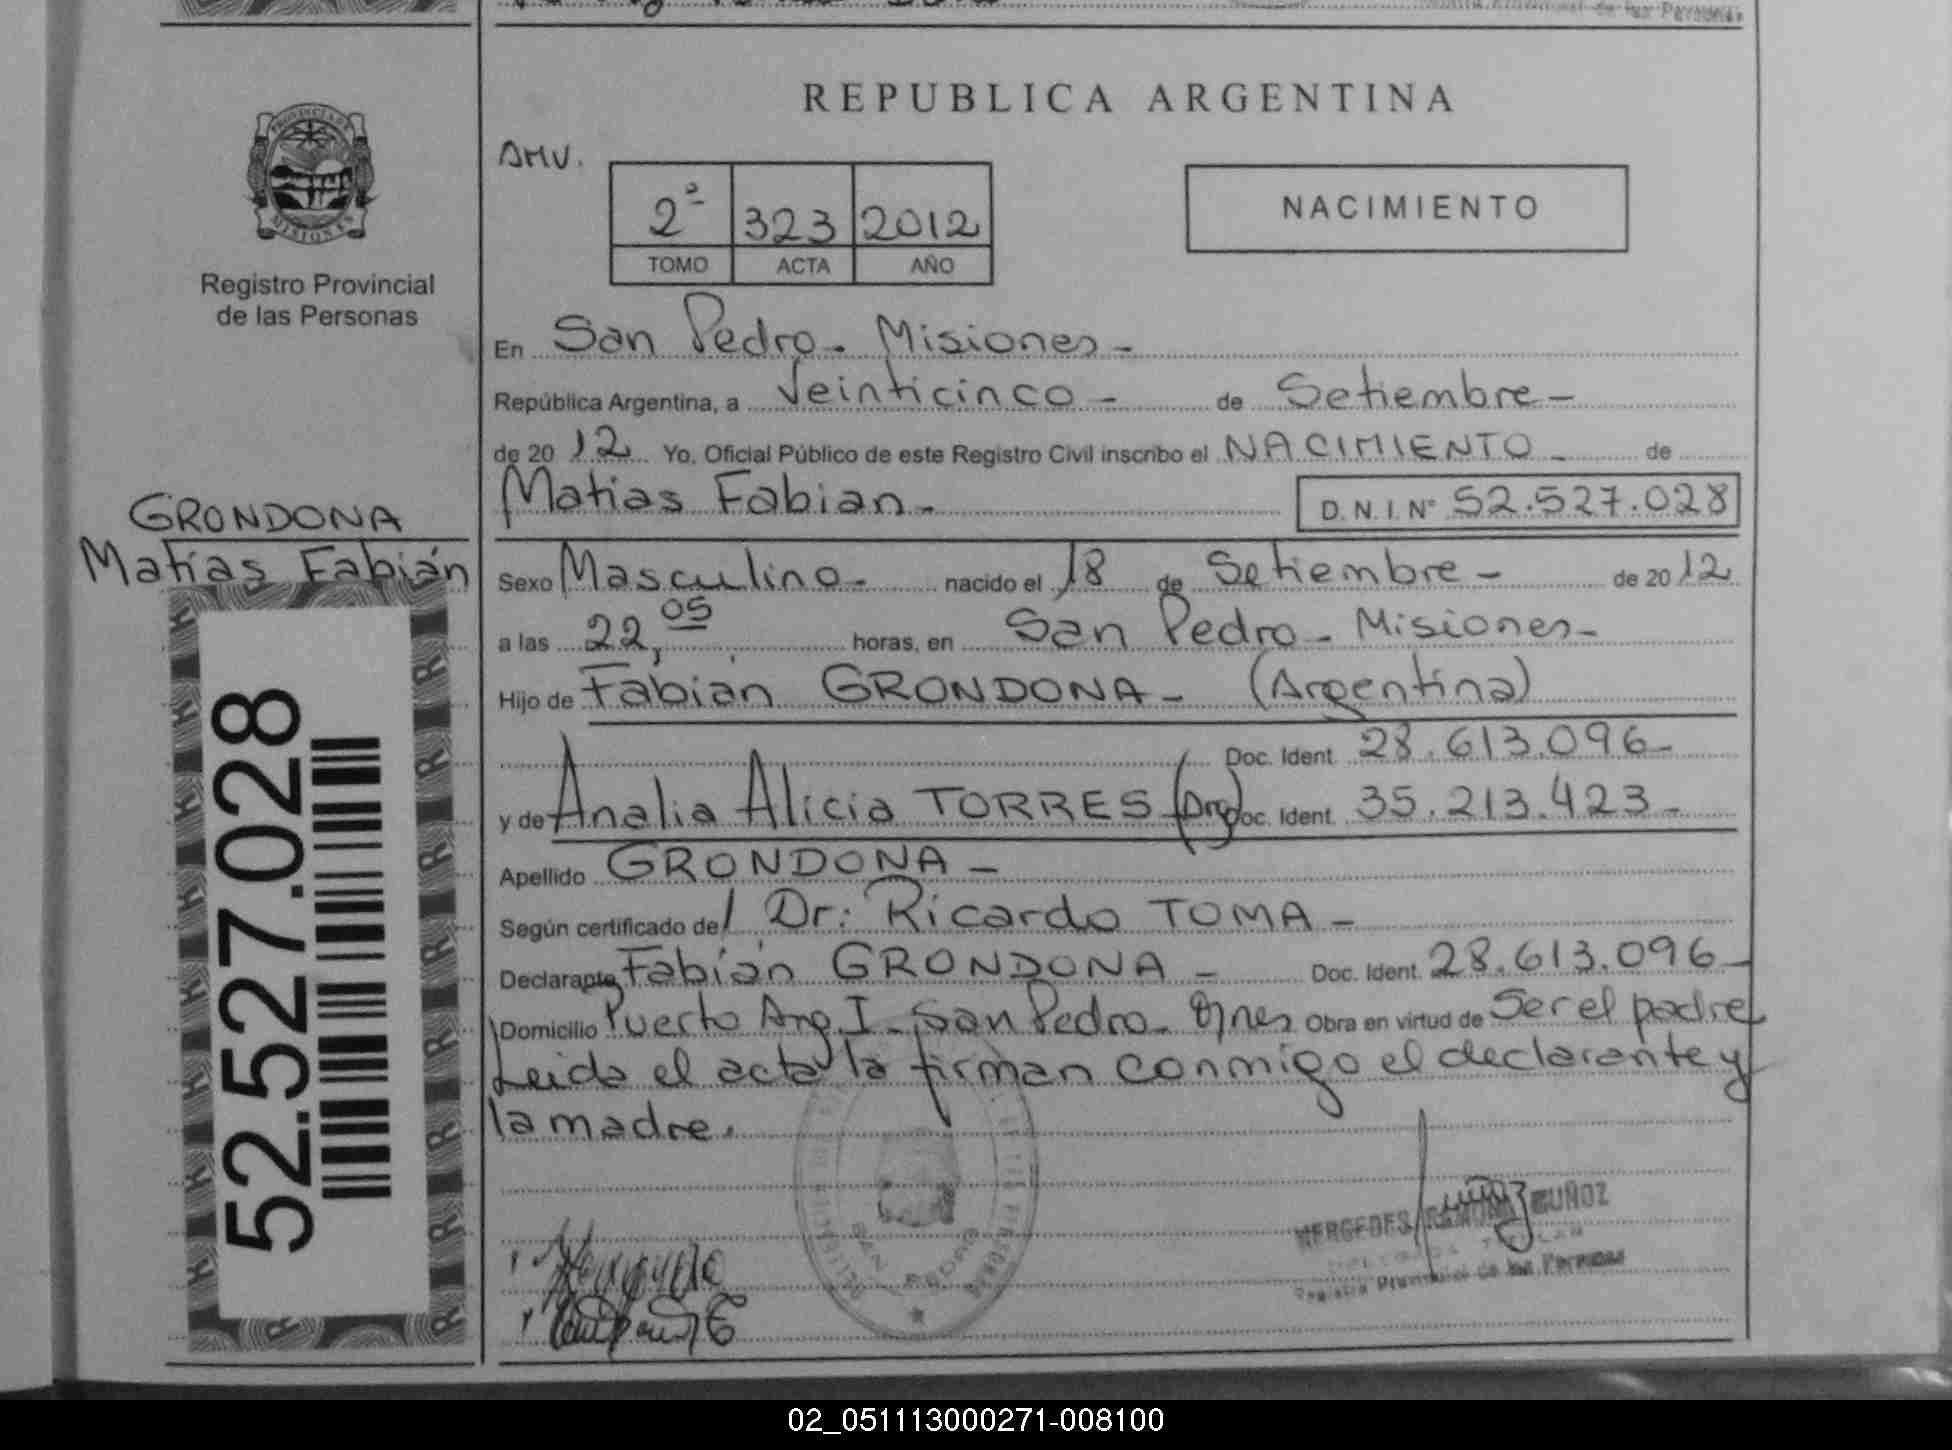 REPUBLICA ARGENTINA
AMV.
2ª 323 2012
TOMO ACTA AÑO
NACIMIENTO
PROVINCIA DE
MISIONES
Registro Provincial
de las Personas
GRONDONA
Matías Fabián
52.527.028
En San Pedro - Misiones -
República Argentina, a Veinticinco - de Setiembre -
de 2012 Yo, Oficial Público de este Registro Civil inscribo el NACIMIENTO - de
Matias Fabian - D.N.I. Nº 52.527.028
Sexo Masculino - nacido el 18 de Setiembre - de 2012
a las 22,05 horas, en San Pedro - Misiones -
Hijo de Fabián GRONDONA - (Argentina)
Doc. Ident. 28.613.096 -
y de Analia Alicia TORRES (Arg) Doc. Ident. 35.213.423 -
Apellido GRONDONA -
Según certificado de/ Dr: Ricardo TOMA -
Declarante Fabián GRONDONA - Doc. Ident. 28.613.096 -
Domicilio Puerto Arg. I - San Pedro - Obra en virtud de Ser el padre
Leida el acta la firman conmigo el declarante y
la madre.
SAN PEDRO
MERCEDES RAMONA
Registro Provincial de las Personas
02_051113000271-008100